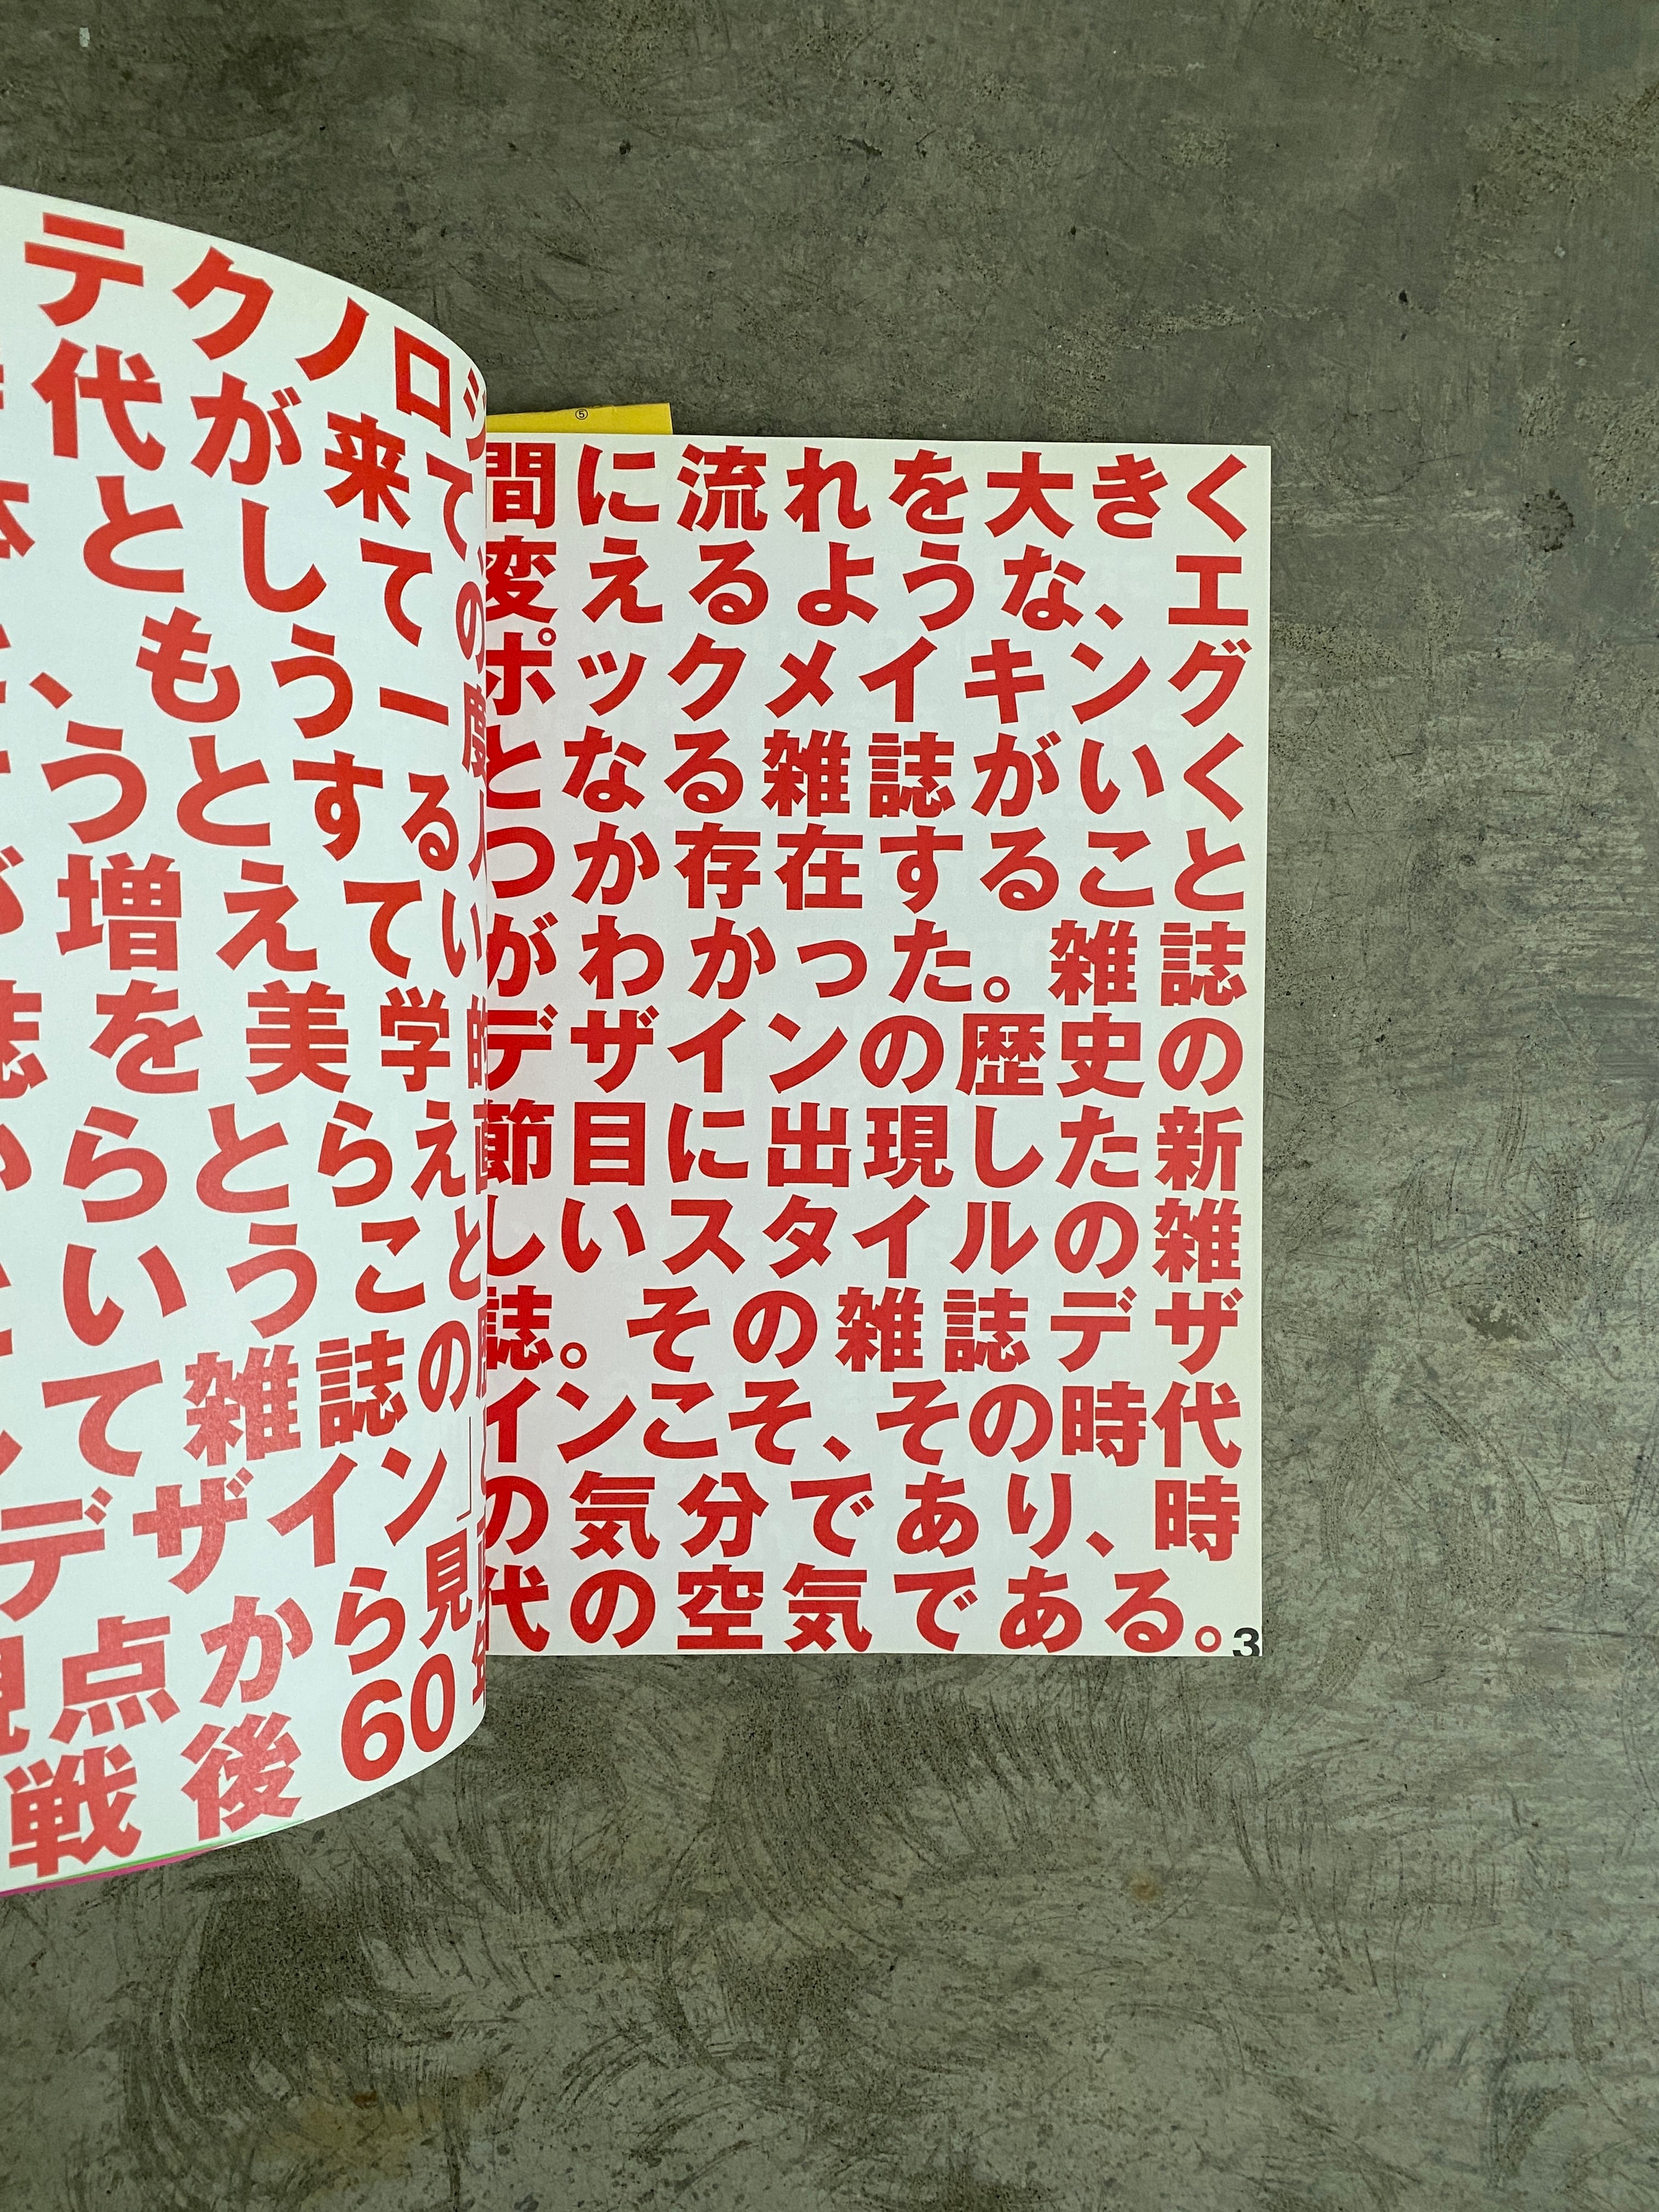 テクノロジ
代が来て、
とし ての
、もう一度
うとする人
増えてい
を美学的
らとらえ直
いうこと
て雑誌の
デザイン」
点から見
戦後60年
間に流れを大きく
変えるような、エ
ポックメイキング
となる雑誌がいく
つか存在すること
がわかった。雑誌
デザインの歴史の
節目に出現した新
しいスタイルの雑
誌。その雑誌デザ
インこそ、その時代
の気分であり、時
代の空気である。
3
⑤